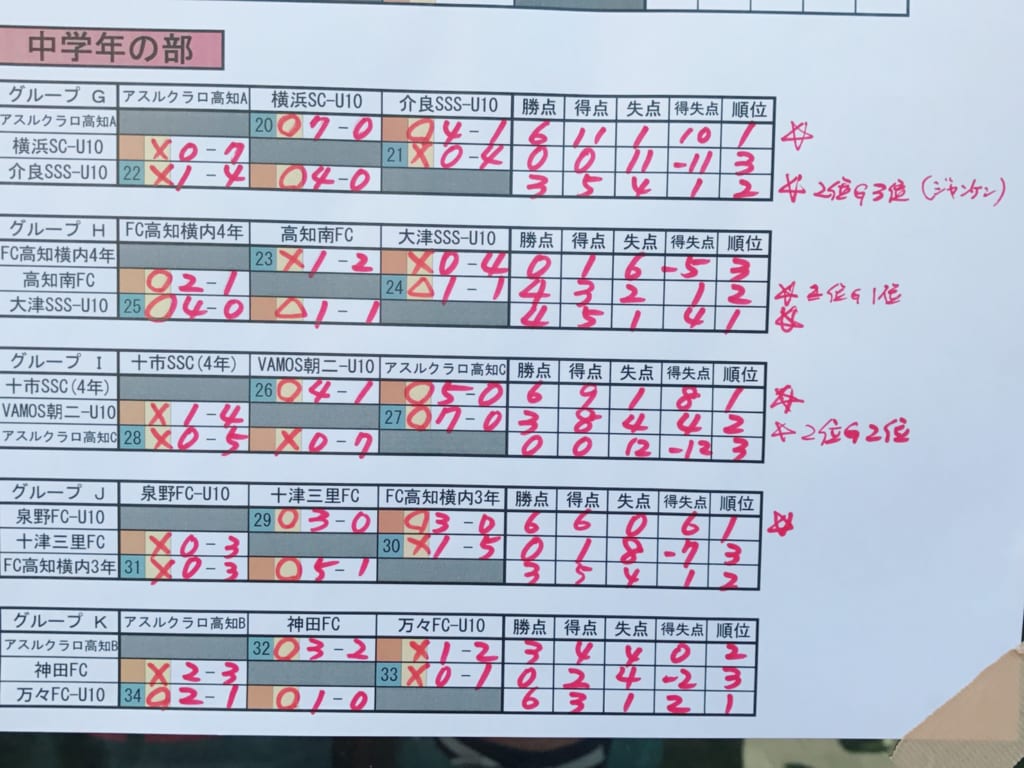 中学年の部
グループ G アスルクラロ高知A 横浜SC-U10 介良SSS-U10 勝点 得点 失点 得失点 順位
アスルクラロ高知A 20 ○ 7-0 ○ 4-1 6 11 1 10 1 ☆
横浜SC-U10 × 0-7 21 × 0-4 0 0 11 -11 3
介良SSS-U10 22 × 1-4 ○ 4-0 3 5 4 1 2 ☆ 2位の3位 (ジャンケン)
グループ H FC高知横内4年 高知南FC 大津SSS-U10 勝点 得点 失点 得失点 順位
FC高知横内4年 23 × 1-2 × 0-4 0 1 6 -5 3
高知南FC ○ 2-1 24 △ 1-1 4 3 2 1 2 ☆ 2位の1位
大津SSS-U10 25 ○ 4-0 △ 1-1 4 5 1 4 1 ☆
グループ I 十市SSC(4年) VAMOS朝二-U10 アスルクラロ高知C 勝点 得点 失点 得失点 順位
十市SSC(4年) 26 ○ 4-1 ○ 5-0 6 9 1 8 1 ☆
VAMOS朝二-U10 × 1-4 27 ○ 7-0 3 8 4 4 2 ☆ 2位の2位
アスルクラロ高知C 28 × 0-5 × 0-7 0 0 12 -12 3
グループ J 泉野FC-U10 十津三里FC FC高知横内3年 勝点 得点 失点 得失点 順位
泉野FC-U10 29 ○ 3-0 ○ 3-0 6 6 0 6 1 ☆
十津三里FC × 0-3 30 × 1-5 0 1 8 -7 3
FC高知横内3年 31 × 0-3 ○ 5-1 3 5 4 1 2
グループ K アスルクラロ高知B 神田FC 万々FC-U10 勝点 得点 失点 得失点 順位
アスルクラロ高知B 32 ○ 3-2 × 1-2 3 4 4 0 2
神田FC × 2-3 33 × 0-1 0 2 4 -2 3
万々FC-U10 34 ○ 2-1 ○ 1-0 6 3 1 2 1